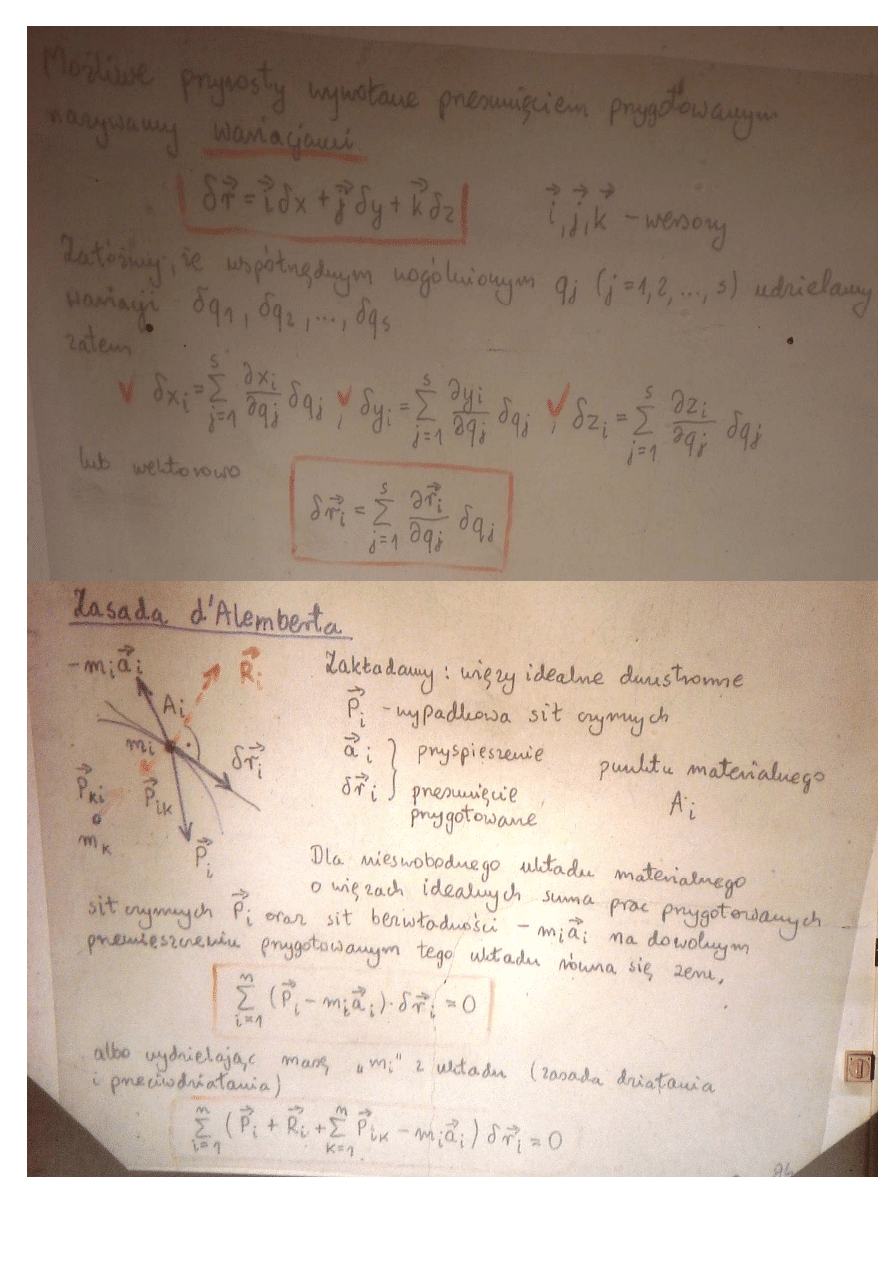 Możliwe przyrosty wywołane przesunięciem przygotowanym
nazywamy wariacjami.
δr⃗ = i⃗δx + j⃗δy + k⃗δz
i⃗, j⃗, k⃗ - wersory
Załóżmy, że współrzędnym uogólnionym qj (j=1,2,...,s) udzielamy
wariacji δq1, δq2, ..., δqs
zatem
δxi = Σ_{j=1}^{s} ∂xi/∂qj δqj , δyi = Σ_{j=1}^{s} ∂yi/∂qj δqj , δzi = Σ_{j=1}^{s} ∂zi/∂qj δqj
lub wektorowo
δr⃗i = Σ_{j=1}^{s} ∂r⃗i/∂qj δqj
Zasada d'Alemberta
-mi a⃗i
R⃗i
Ai
mi
δr⃗i
P⃗ki
P⃗ik
mk
P⃗i
Zakładamy : więzy idealne dwustronne
P⃗i - wypadkowa sił czynnych
a⃗i } przyspieszenie
δr⃗i } przesunięcie
przygotowane
punktu materialnego
Ai
Dla nieswobodnego układu materialnego
o więzach idealnych suma prac przygotowanych
sił czynnych P⃗i oraz sił bezwładności -mi a⃗i na dowolnym
przemieszczeniu przygotowanym tego układu równa się zeru.
Σ_{i=1}^{n} (P⃗i - mi a⃗i)·δr⃗i = 0
albo wydzielając masę „mi" z układu (zasada działania
i przeciwdziałania)
Σ_{i=1}^{n} (P⃗i + R⃗i + Σ_{k=1}^{n} P⃗ik - mi a⃗i) δr⃗i = 0